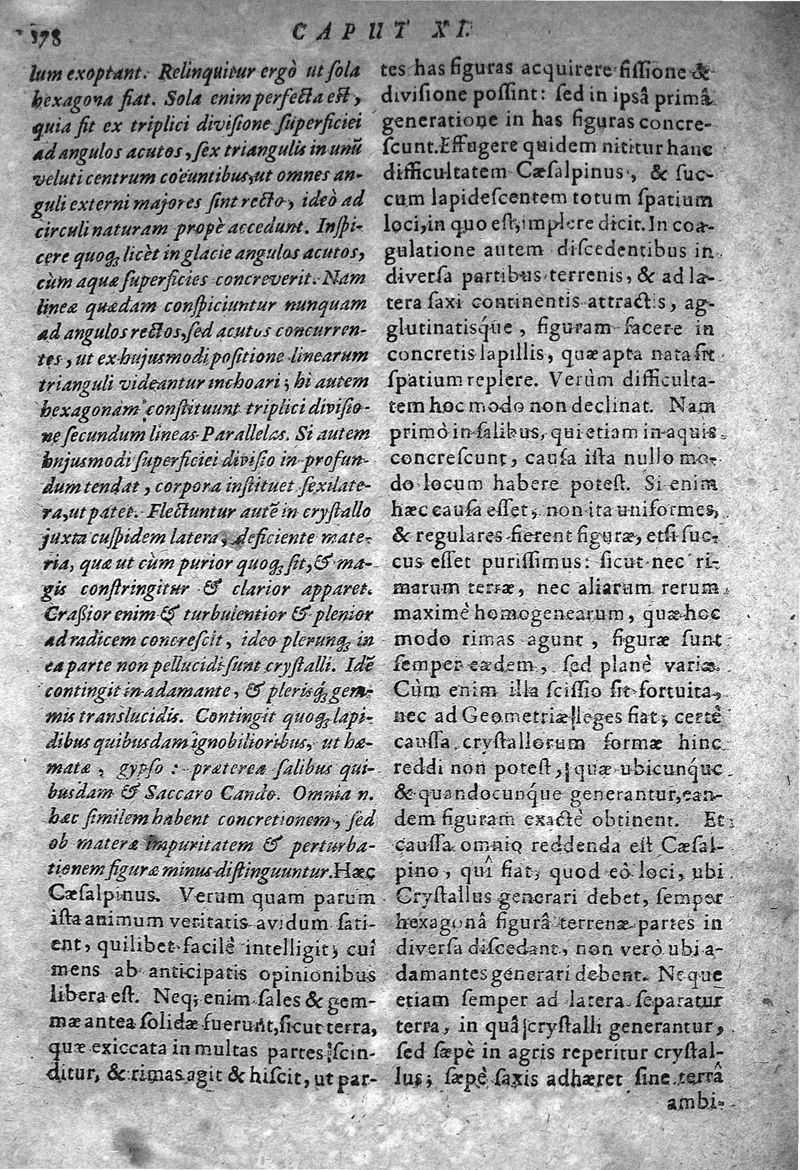 378
CAPUT XI.
lum exoptant. Relinquitur ergò ut ſola
hexagona fiat. Sola enim perfecta eſt,
quia fit ex triplici diviſione ſuperficiei
ad angulos acutos, ſex triangulis in unũ
veluti centrum coëuntibus, ut omnes an-
guli externi majores ſint recto, ideò ad
circuli naturam propè accedunt. Inſpi-
cere quoq; licèt in glacie angulos acutos,
cùm aquæ ſuperficies concreverit. Nam
lineæ quædam conſpiciuntur nunquam
ad angulos rectos, ſed acutos concurren-
tes, ut ex hujusmodi poſitione linearum
trianguli videantur inchoari; hi autem
hexagonam conſtituunt triplici diviſio-
ne ſecundum lineas Parallelas. Si autem
hujusmodi ſuperficiei diviſio in profun-
dum tendat, corpora inſtituet ſexilate-
ra, ut patet. Flectuntur autẽ in cryſtallo
juxta cuſpidem latera, deficiente mate-
ria, quæ ut cùm purior quoq; ſit, & ma-
gis conſtringitur & clarior apparet.
Craßior enim & turbulentior & plenior
ad radicem concreſcit, ideo plerunq; in
ea parte non pellucidi ſunt cryſtalli. Idẽ
contingit in adamante, & plerisq; gem-
mis translucidis. Contingit quoq; lapi-
dibus quibusdam ignobilioribus, ut hæ-
matæ, gypſo: præterea ſalibus qui-
busdam & Saccaro Cando. Omnia n.
hæc ſimilem habent concretionem, ſed
ob materæ impuritatem & perturba-
tionem figuræ minus diſtinguuntur. Hæc
Cæſalpinus. Verum quam parum
iſta animum veritatis avidum ſati-
ent, quilibet facilè intelligit, cui
mens ab anticipatis opinionibus
libera eſt. Neq; enim ſales & gem-
mæ antea ſolidæ fuerunt, ſicut terra,
quæ exiccata in multas partes ſcin-
ditur, & rimas agit & hiſcit, ut par-
tes has figuras acquirere fiſſione &
diviſione poſſint: ſed in ipsâ primâ
generatione in has figuras concre-
ſcunt. Effugere quidem nititur hanc
difficultatem Cæſalpinus, & ſuc-
cum lapideſcentem totum ſpatium
loci, in quo eſt, implere dicit. In coa-
gulatione autem diſcedentibus in
diverſa partibus terrenis, & ad la-
tera ſaxi continentis attractis, ag-
glutinatisq́ue, figuram facere in
concretis lapillis, quæ apta nata ſit
ſpatium replere. Verùm difficulta-
tem hoc modo non declinat. Nam
primò in ſalibus, qui etiam in aquis
concreſcunt, cauſa iſta nullo mo-
do locum habere poteſt. Si enim
hæc cauſa eſſet, non ita uniformes,
& regulares fierent figuræ, etſi ſuc-
cus eſſet puriſſimus: ſicut nec ri-
marum terræ, nec aliarum rerum
maximè homogenearum, quæ hoc
modo rimas agunt, figuræ ſunt
ſemper eædem, ſed planè variæ.
Cùm enim illa ſciſſio ſit fortuita,
nec ad Geometriæ leges fiat; certè
cauſſa cryſtallorum formæ hinc
reddi non poteſt, quæ ubicunq́ue
& quandocunque generantur, ean-
dem figuram exactè obtinent. Et
cauſſa omniq reddenda eſt Cæſal-
pino, quî fiat, quod eò loci, ubi
Cryſtallus generari debet, ſemper
hexagonâ figurâ terrenæ partes in
diverſa diſcedant, non verò ubi a-
damantes generari debent. Neque
etiam ſemper ad latera ſeparatur
terra, in quâ cryſtalli generantur,
ſed ſæpè in agris reperitur cryſtal-
lus; ſæpè ſaxis adhæret ſine terrâ
ambi-